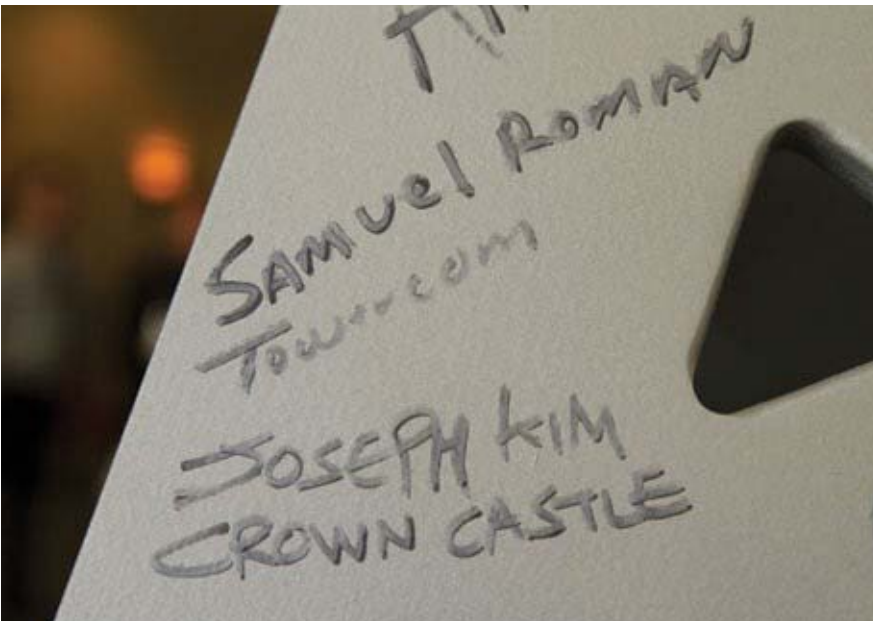 Samuel Roman
Towercom
JOSEPH KIM
CROWN CASTLE